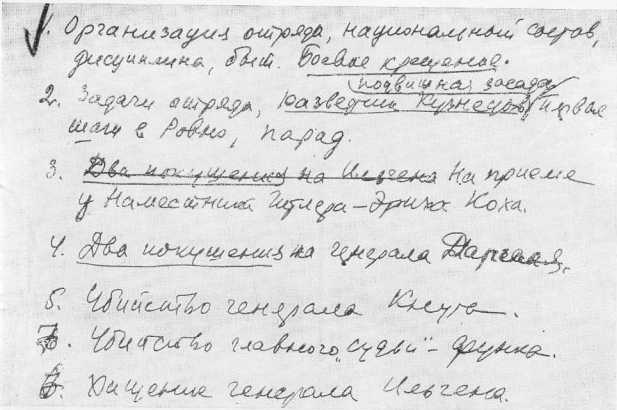 1. Организация отряда, национальный состав,
дисциплина, быт. Боевое крещение.
подвижная засада
2. Задачи отряда, разведчик Кузнецов, первые
шаги в Ровно, парад.
3. Два покушения на Ильгена На приеме
у наместника Гитлера – Эриха Коха.
4. Два покушения на генерала Даргеля.
5. Убийство генерала Кнута.
7. Убийство главного "судьи" – Функа.
6. Хищение генерала Ильгена.